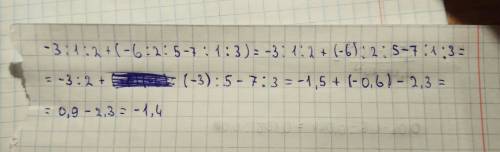 -3:1:2+(-6:2:5-7:1:3)=-3:1:2+(-6):2:5-7:1:3=
=-3:2+(-3):5-7:3=-1,5+(-0,6)-2,3=
=0,9-2,3=-1,4